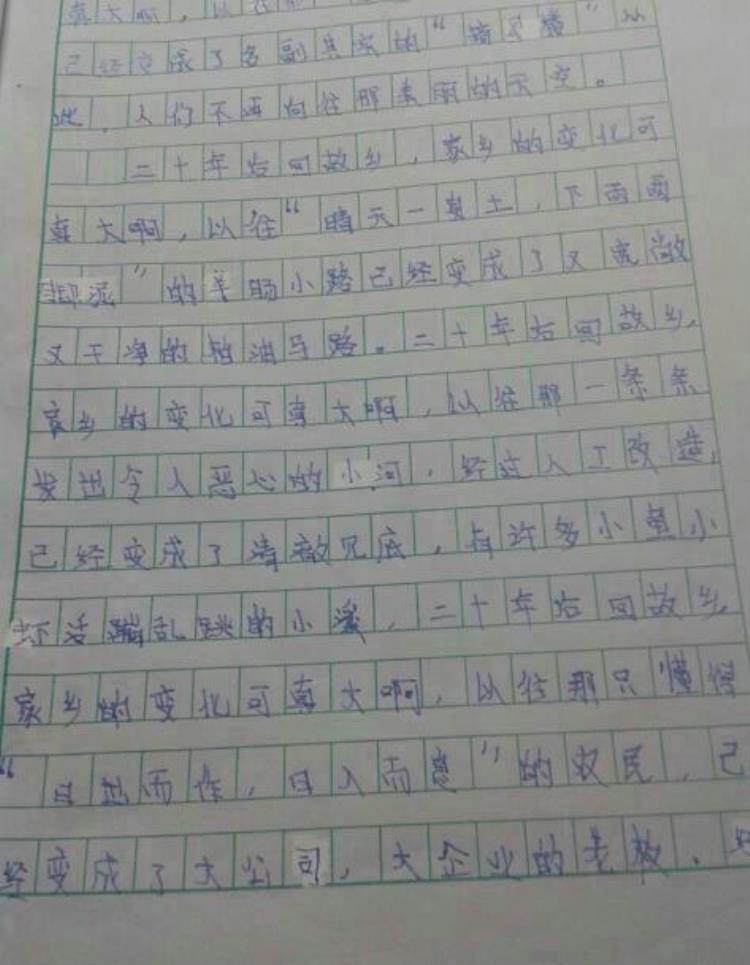 真大啊，以往那
已经变成了名副其实的“ ”从
此，人们不再向往那美丽的天空。
二十年后回故乡，家乡的变化可
真大啊，以往“晴天一身土，下雨两
脚泥”的羊肠小路已经变成了又宽敞
又干净的柏油马路。二十年后回故乡，
家乡的变化可真大啊，以往那一条条
发出令人恶心的小河，经过人工改造，
已经变成了清澈见底，有许多小鱼小
虾活蹦乱跳的小溪，二十年后回故乡
家乡的变化可真大啊，以往那只懂得
“日出而作，日入而息”的农民，已
经变成了大公司，大企业的老板，